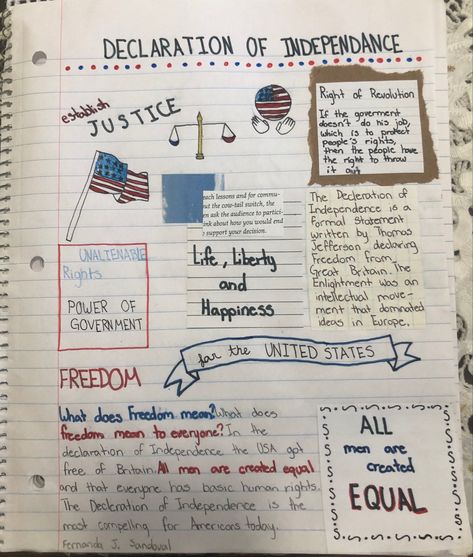 DECLARATION OF INDEPENDANCE
establish
JUSTICE
Right of Revolution
If the goverment
doesn't do his job,
which is to protect
people's rights,
then the people have
the right to throw
it out
each lessons and for commu-
out the cow-tail switch, the
en ask the audience to partici-
ink about how you would end
support your decision.
The Declaration of
Independence is a
formul statement
written by Thomas
Jefferson, declaring
Freedom from
Great Britain. The
Enlightment was an
intellectual move-
ment that dominated
ideas in Europe.
UNALIENABLE
Rights
POWER OF
GOVERNMENT
Life, Liberty
and
Happiness
for the UNITED STATES
FREEDOM
What does Freedom mean? What does
freedom mean to everyone? In the
declaration of Independence the USA got
free of Britain. All men are created equal
and that everyone has basic human rights.
The Declaration of Independence is the
most compelling for Americans today.
Fernanda J. Sandoval
ALL
men are
created
EQUAL